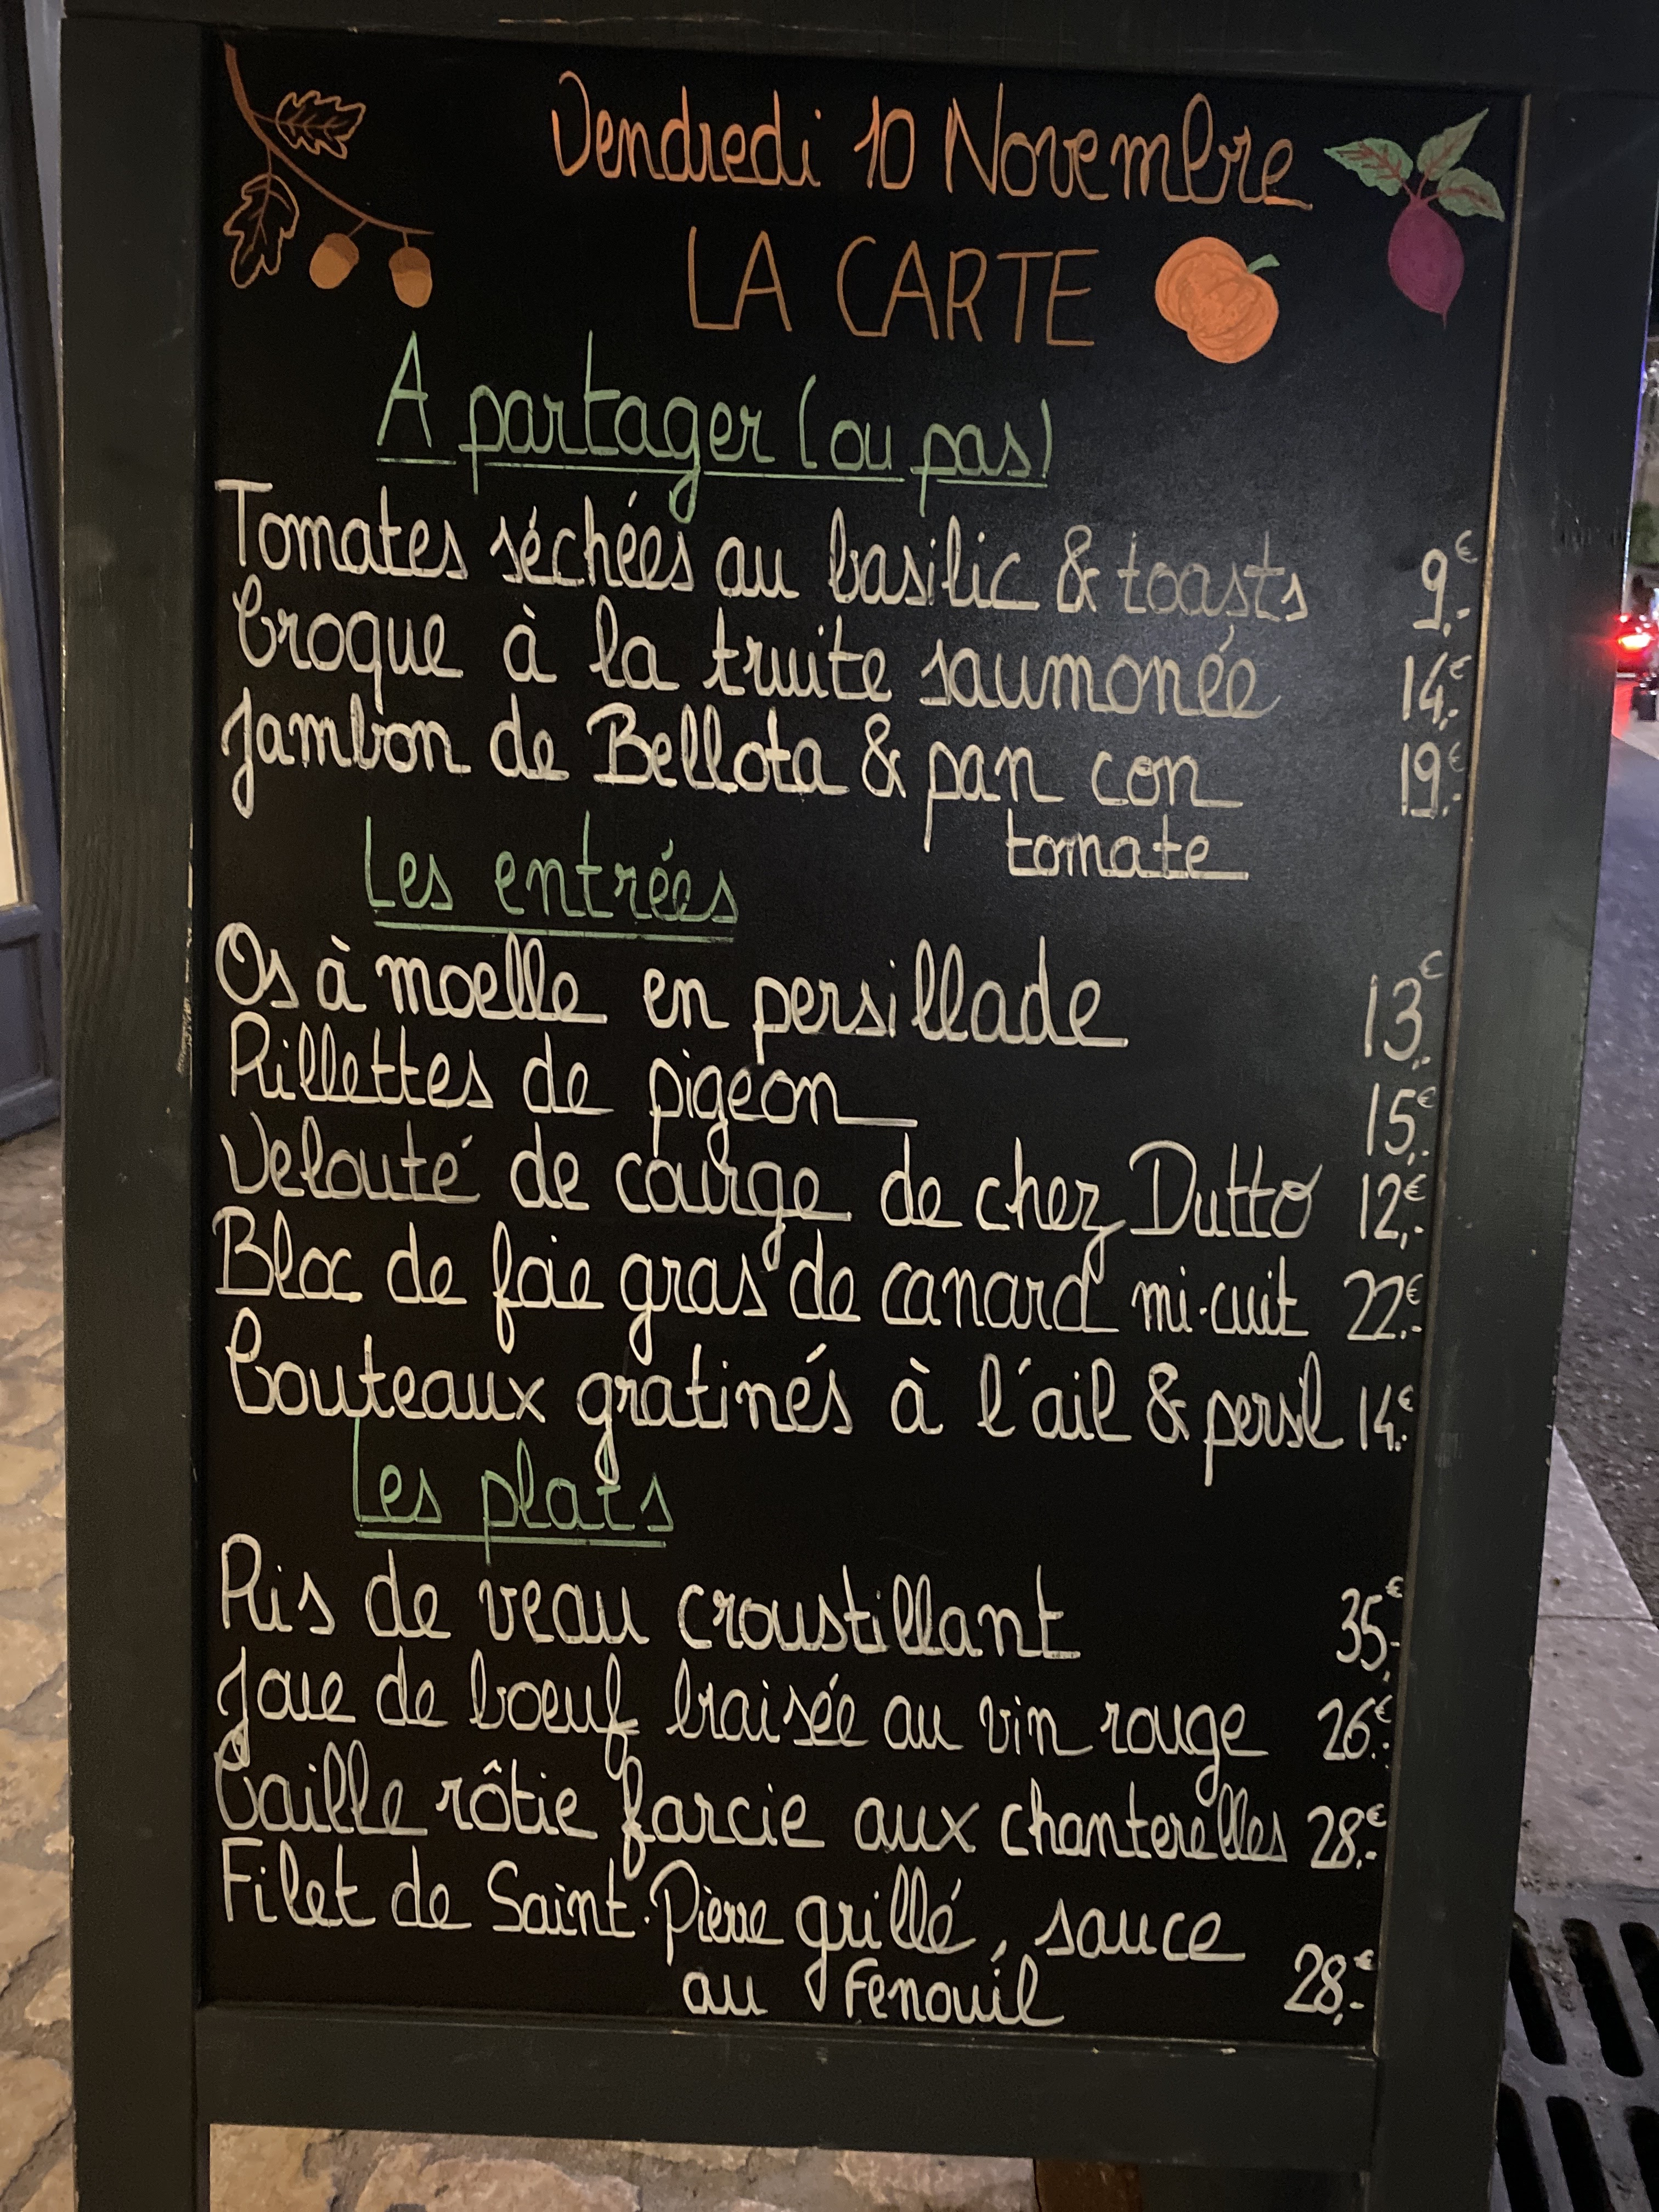 Vendredi 10 Novembre
LA CARTE
A partager (ou pas)
Tomates séchées au basilic & toasts 9,-€
Croque à la truite saumonée 14,-€
Jambon de Bellota & pan con 19,-€
tomate
Les entrées
Os à moelle en persillade 13,-€
Rillettes de pigeon 15,-€
Velouté de courge de chez Dutto 12,-€
Bloc de foie gras de canard mi-cuit 22,-€
Couteaux gratinés à l'ail & persil 14,-€
Les plats
Ris de veau croustillant 35,-€
Joue de boeuf braisée au vin rouge 26,-€
Caille rôtie farcie aux chanterelles 28,-€
Filet de Saint-Pierre grillé, sauce
au Fenouil 28,-€